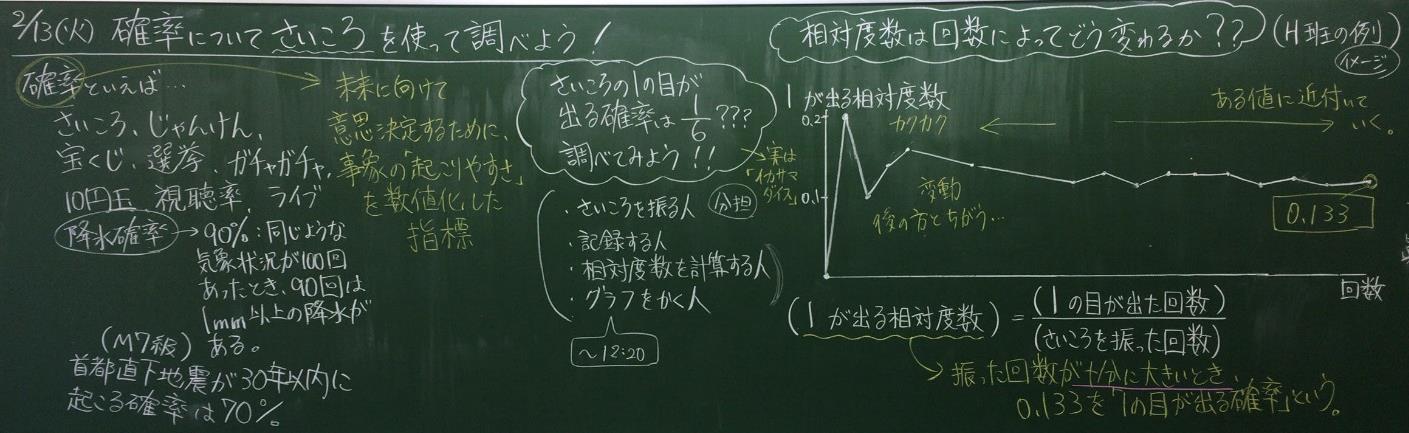 2/13(火) 確率についてさいころを使って調べよう!
確率といえば…
さいころ、じゃんけん、
宝くじ、選挙、ガチャガチャ、
10円玉、視聴率、ライブ
降水確率→90%:同じような
気象状況が100回
あったとき、90回は
1mm以上の降水が
ある。
(M7級)
首都直下地震が30年以内に
起こる確率は70%
→未来に向けて
意思決定するために、
事象の「起こりやすさ」
を数値化した
指標
さいころの1の目が
出る確率は1/6???
調べてみよう!!
→実は
「イカサマ
ダイス」
・さいころを振る人 分担
・記録する人
・相対度数を計算する人
・グラフをかく人
~12:20
相対度数は回数によってどう変わるか?? (H班の例)
イメージ
1が出る相対度数
0.2
0.1
カクカク
変動
後の方とちがう…
ある値に近付いて
いく。
0.133
回数
(1が出る相対度数)=(1の目が出た回数)/(さいころを振った回数)
→振った回数が十分に大きいとき、
0.133を「1の目が出る確率」という。